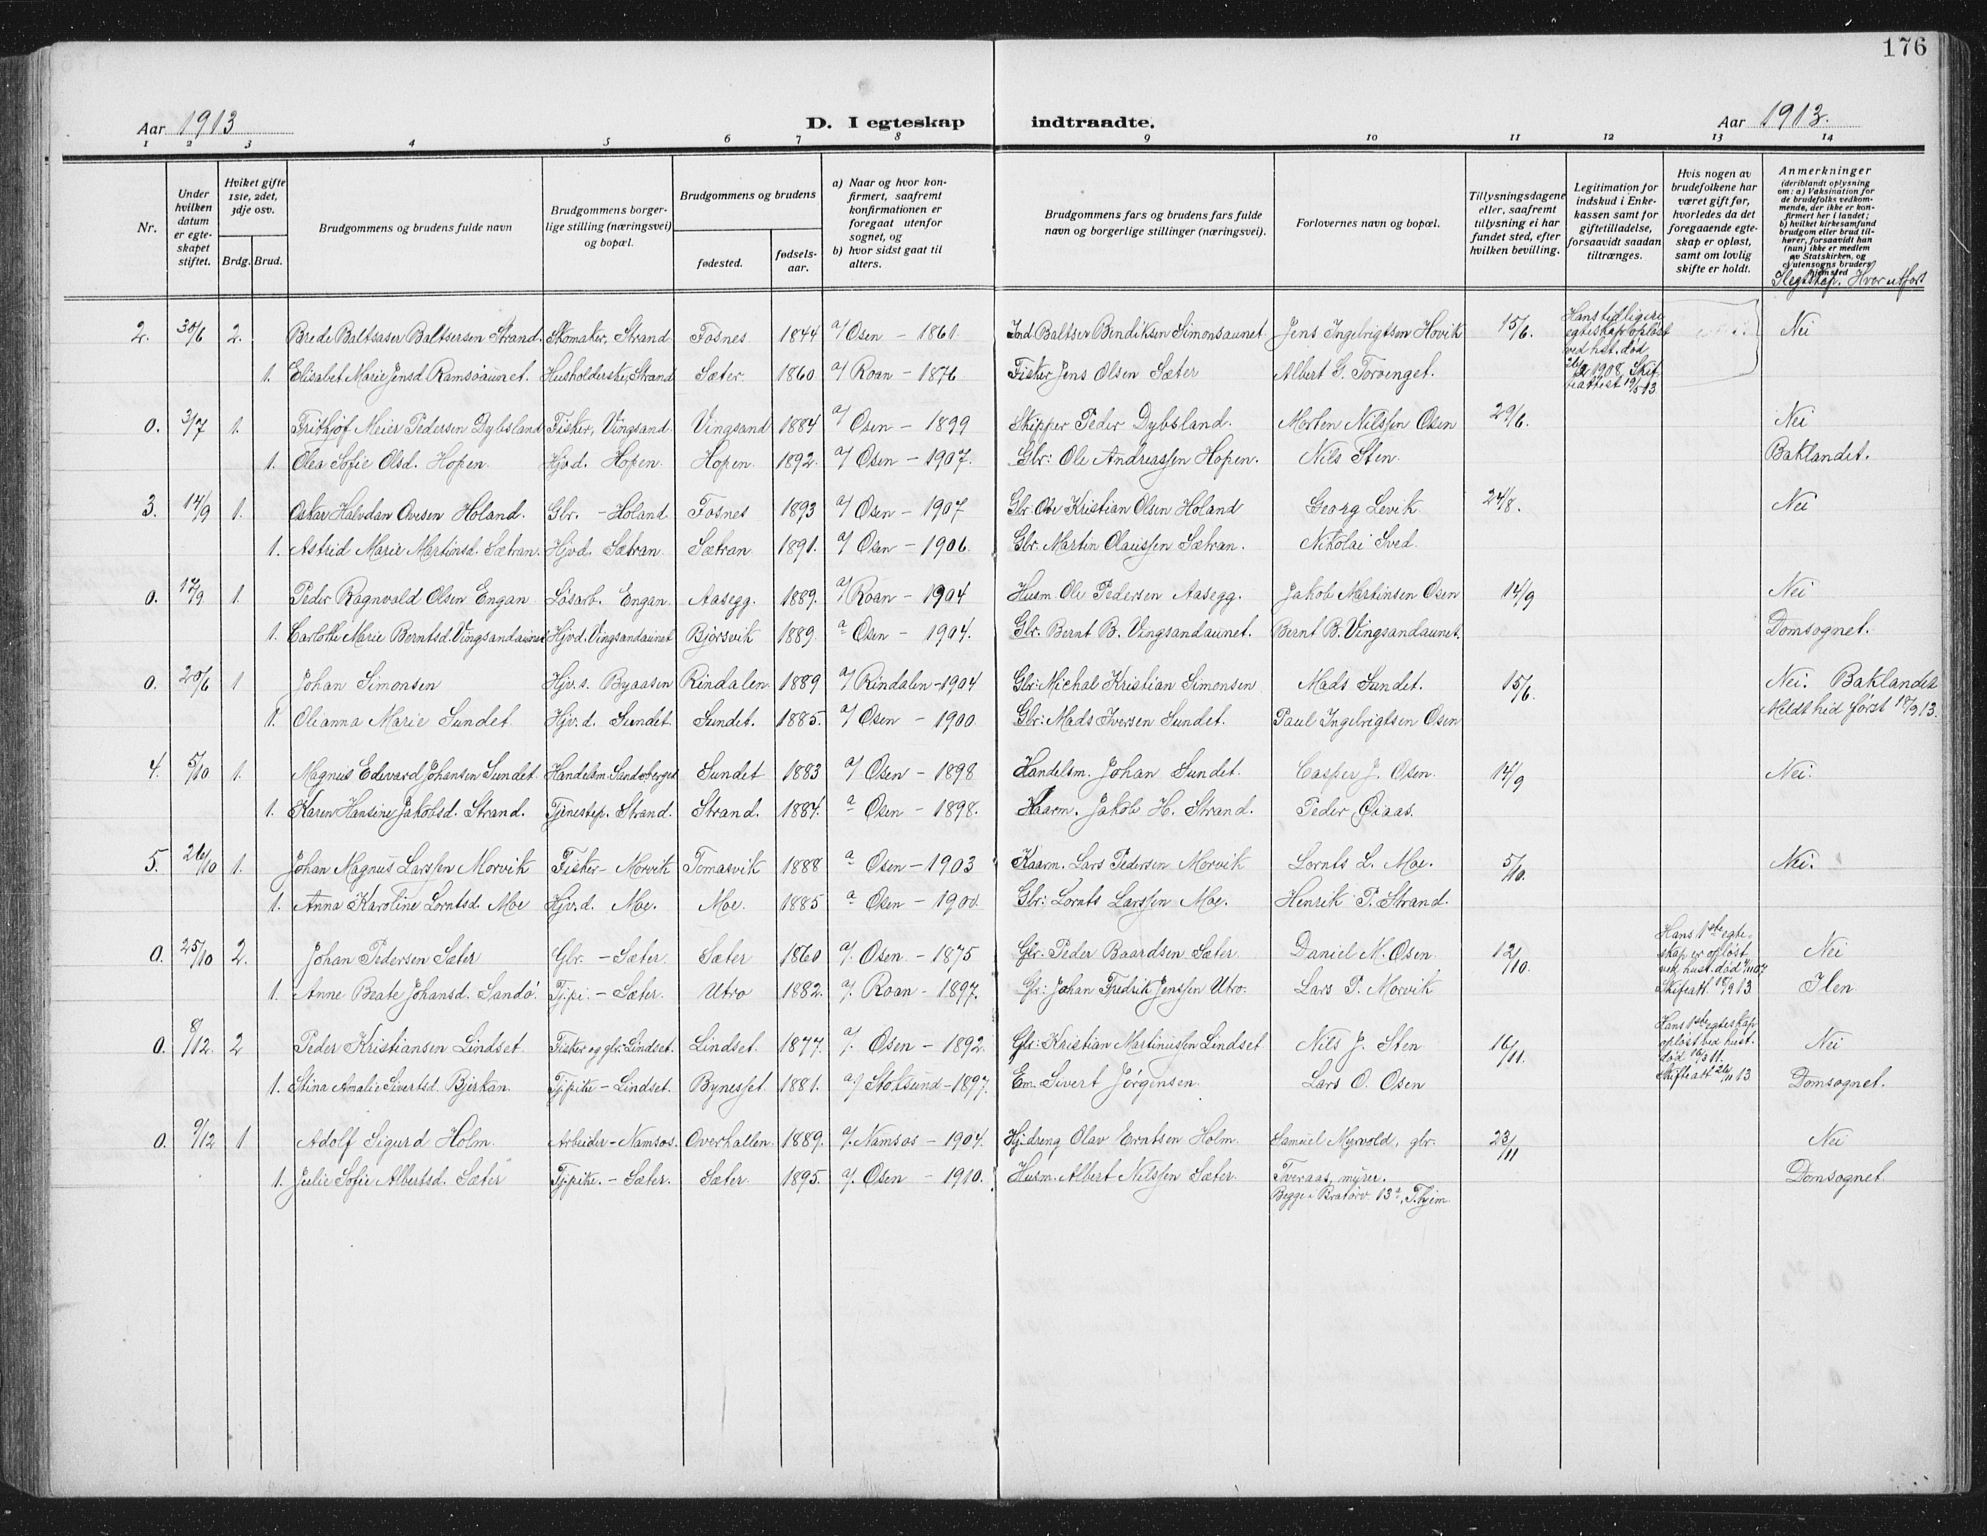 176
Aar 1913
D. I egteskap indtraadte.
Aar 1913.
1 2 3 4 5 6 7 8 9 10 11 12 13 14
Nr.
Under hvilken datum er egteskapet stiftet.
Hviket gifte 1ste, 2det, 3dje osv.
Brdg. Brud.
Brudgommens og brudens fulde navn
Brudgommens borgerlige stilling (næringsvei) og bopæl.
Brudgommens og brudens
fødested.
fødselsaar.
a) Naar og hvor konfirmert, saafremt konfirmationen er foregaat utenfor sognet, og
b) hvor sidst gaat til alters.
Brudgommens fars og brudens fars fulde navn og borgerlige stillinger (næringsvei).
Forlovernes navn og bopæl.
Tillysningsdagene eller, saafremt tillysning ei har fundet sted, efter hvilken bevilling.
Legitimation for indskud i Enkekassen samt for giftetilladelse, forsaavidt saadan tiltrænges.
Hvis nogen av brudefolkene har været gift før, hvorledes da det foregaaende egteskap er opløst, samt om lovlig skifte er holdt.
Anmerkninger
(deriblandt oplysning om: a) Vaksination for de brudefolks vedkommende, der ikke er konfirmert her i landet; b) hvilket kirkesamfund brudgom eller brud tilhører, forsaavidt han (nun) ikke er medlem av Statskirken, og c) utensogns bruders hjemsted
Slegtskap. Hvor utført
2. 30/6 2. Brede Baltsaser Baltsersen Strand. Skomaker, Strand Fosnes 1844 a/ Osen – 1861. Ind Baltser Bendiksen Simonsaunet Jens Ingebrigtsen Hovik 15/6. Hans tidligere egteskap opløst ved hst. død 26/2 1908, Skifteattest 19/5 13 Nei
1. Elisabet Marie Jensd Ramsøaunet. Husholderske, Strand Sæter 1860 a/ Roan – 1876 Fisker Jens Olsen Sæter Albert G. Torvenget.
0. 3/7 1. Frithjof Meier Pedersen Dybsland Fisker, Vingsand Vingsand 1884 a/ Osen – 1899 Skipper Peder Dybsland. Morten Nilssen Osen 29/6. Nei
1. Olea Sofie Olsd. Hopen. Hjvd. Hopen. Hopen. 1892. a/ Osen – 1907. Gbr: Ole Andreassen Hopen. Nils Sten. Baklandet.
3. 14/9 1. Oskar Halvdan Ovesen Holand. Gbr. – Holand Fosnes 1893 a/ Osen – 1907 Gbr. Ove Kristian Olsen Holand Georg Levik 24/8. Nei
1. Astrid Marie Martinsd. Sætran. Hjvd. Sætran. Sætran 1891. a/ Osen – 1906. Gbr. Martin Olaussen Sætran. Nikolai Sved.
0. 17/9 1. Peder Ragnvald Olsen Engan Løsarb. Engan. Aasegg. 1889. a/ Roan – 1904 Husm. Ole Pedersen Aasegg. Jakob Martinsen Osen 14/9 Nei
1. Carlotte Marie Berntsd. Vingsandaunet Hjvd. Vingsandaunet Bjørsvik 1889. a Osen – 1904. Gbr. Bernt B. Vingsandaunet. Bernt B. Vingsandaunet. Domsognet.
0. 20/6 1 Johan Simonsen Hjv. s. Byaasen Rindalen 1889 a/ Rindaln – 1904 Gbr: Michal Kristian Simonsen Mads Sundet. 15/6. Nei. Baklandet
1. Olianna Marie Sundet Hjv. d. Sundet Sundet. 1885. a/ Osen – 1900. Gbr: Mads Iversen Sundet. Paul Ingebrigtsen Osen Meldt hid først 17/9 13.
4. 5/10 1. Magnus Edevard Johansen Sundet Handelsm. Sandviberget Sundet 1883 a/ Osen – 1898 Handelsm. Johan Sundet. Casper J. Osen. 14/9 Nei.
1. Karen Hansine Jakobsd. Strand. Tjenestep. Strand. Strand. 1884. a Osen – 1898. Kaarm. Jakob H. Strand. Peder Øiaas.
5. 26/10 1. Johan Magnus Larssen Morvik Fisker – Morvik Tomasvik 1888 a Osen – 1903 Kaarm. Lars Pedersen Morvik Lornts L. Moe. 5/10. Nei.
1. Anna Karoline Lorntsd. Moe Hjv. d. Moe. Moe. 1885 a Osen – 1900. Gbr: Lornts Larssen Moe. Henrik P. Strand.
0. 25/10 2. Johan Pedersen Sæter Gbr. – Sæter. Sæter 1860 a/. Osen – 1875 Gbr. Peder Baardsen Sæter. Daniel M. Osen. 12/10. Hans 1ste egteskap er opløst ved hust. død 4/11 07 Skifeatt. 18/9 13 Nei
1. Anne Beate Johansd. Sandø. Tjpi. – Sæter. Utro 1882. a/. Roan – 1897. Gbr: Johan Fredrik Jenssen Utro. Lars P. Morvik Ilen
0. 8/12. 2 Peder Kristiansen Lindset. Fisker og gbr. Lindset. Lindset. 1877. a/. Osen – 1892. Gbr: Kristian Martinussen Lindset Nils J. Sten 16/11. Hans 1ste egteskap opløst ved hust. død 16/3 11. Skifteatt 26/11 13 Nei
1. Stina Amalie Sivertsd. Bjirkan. Tjpike – Lindset. Bynesset. 1881. a/ Stoksund – 1897. Em. Sivert Jørgensen. Lars O. Osen Domsognet.
0. 9/12 1 Adolf Sigurd Holm. Arbeider – Namsos. Overhallen. 1889. a/. Namsos – 1904. Hjdreng Olav Erntsen Holm. Samuel Myrvold, gbr. 23/11 Nei
1. Julie Sofie Albertsd. Sæter Tjpike. – Sæter. Sæter. 1895. a/. Osen – 1910. Husm. Albert Nilssen Sæter. Tveraas, mürer. Domsognet.
Begge i Bratørv. 13a, T.hjem